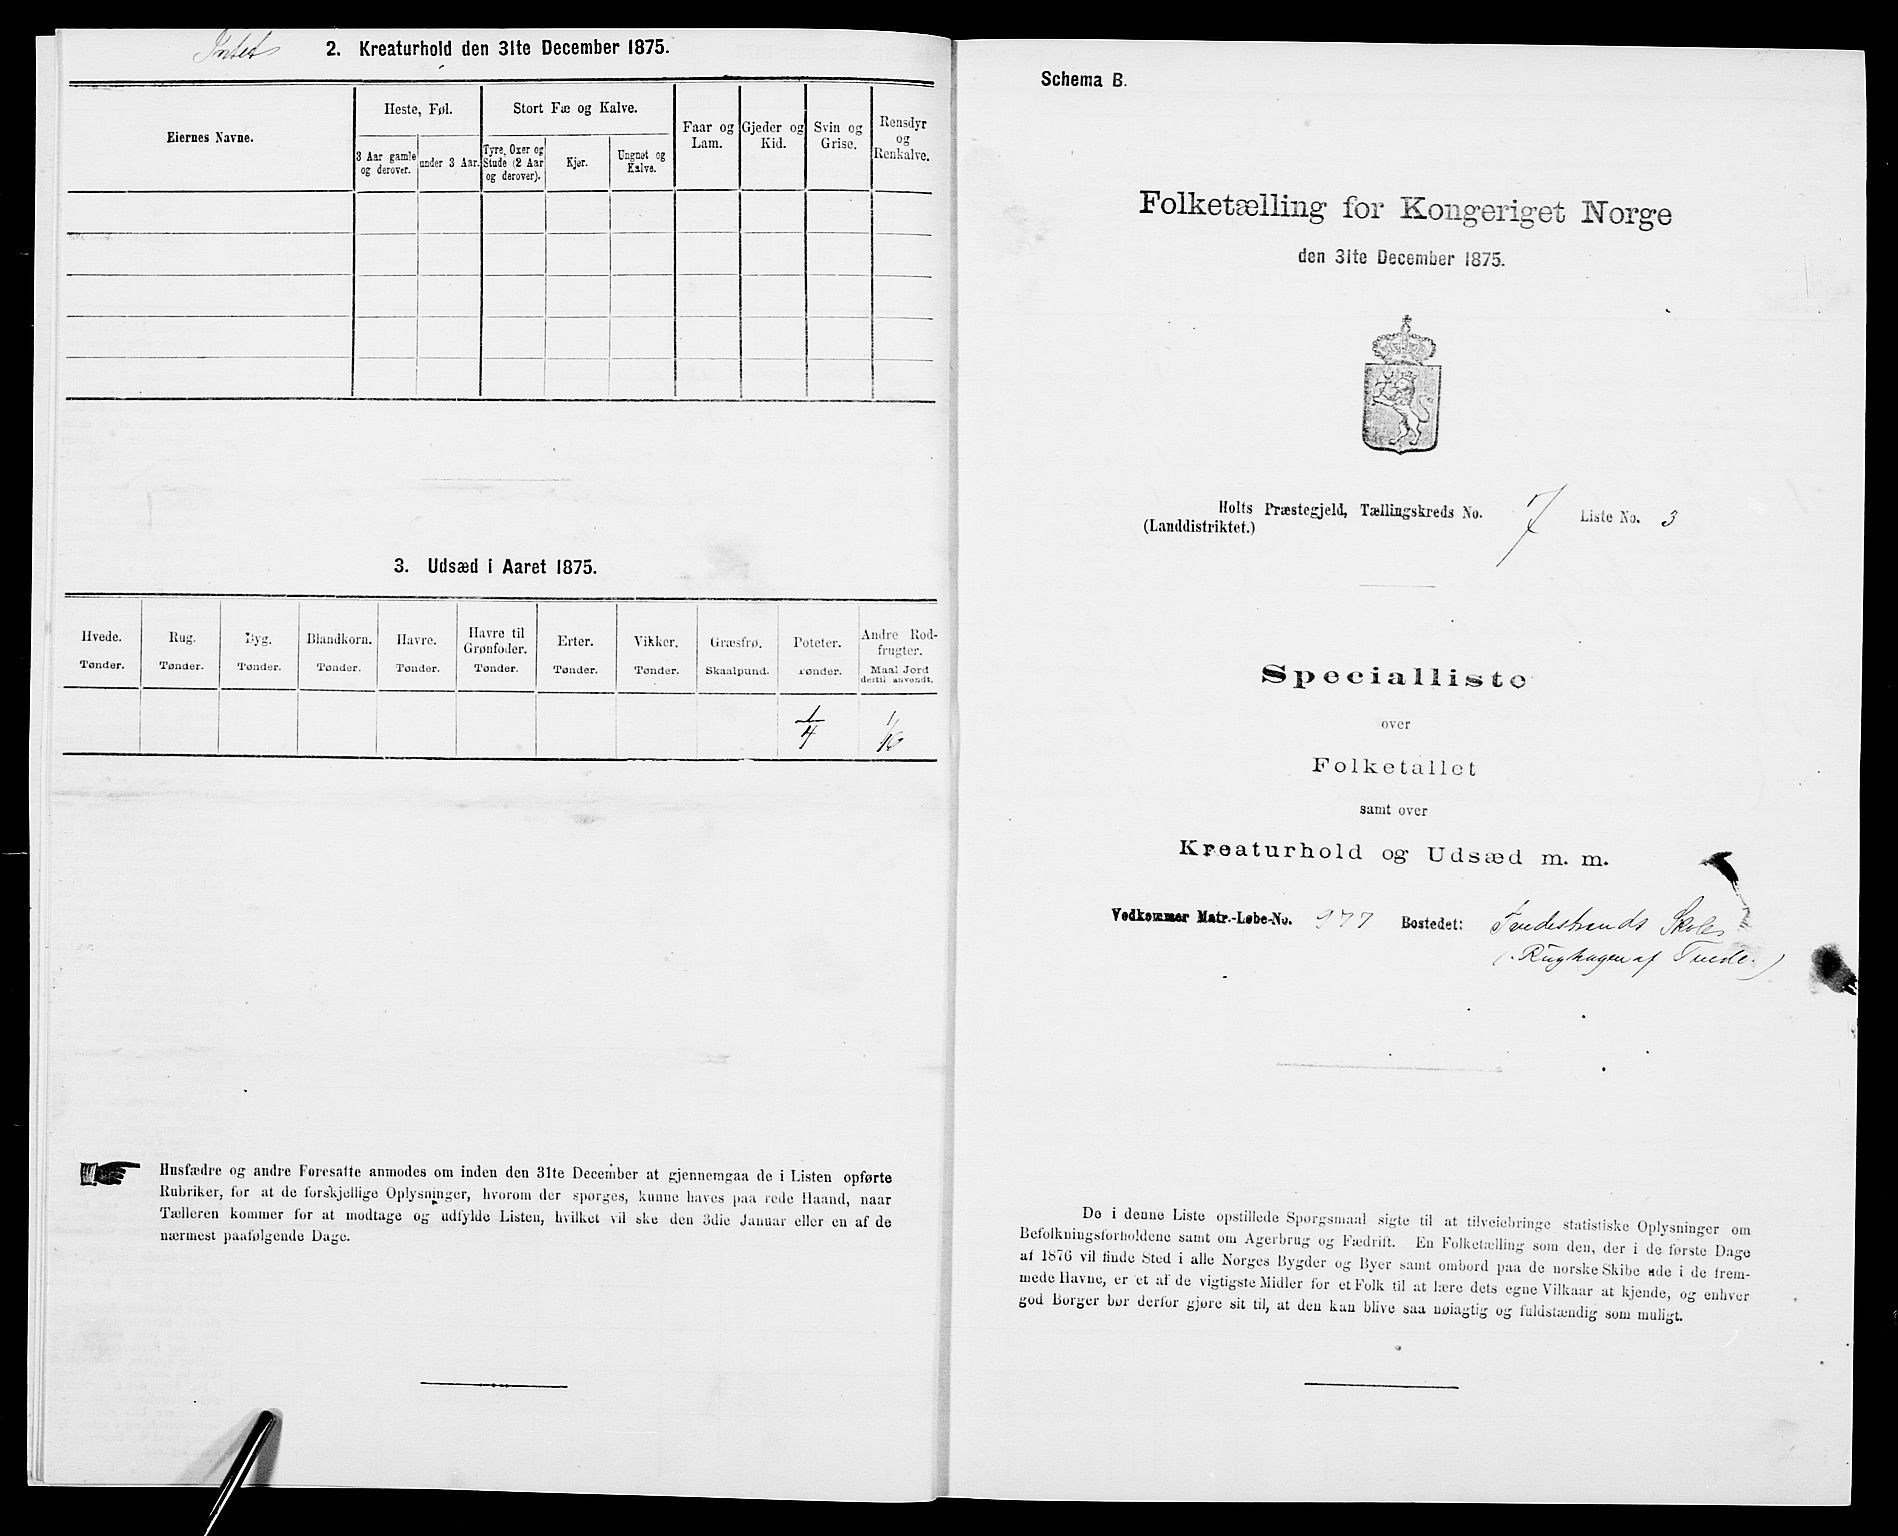 Intet
2. Kreaturhold den 31te December 1875.
Eiernes Navne.
Heste, Føl.
Stort Fæ og Kalve.
Faar og Lam.
Gjeder og Kid.
Svin og Grise.
Rensdyr og Renkalve.
3 Aar gamle og derover.
under 3 Aar.
Tyre, Oxer og Stude (2 Aar og derover).
Kjør.
Ungnøt og Kalve.
3. Udsæd i Aaret 1875.
Hvede. Tønder.
Rug. Tønder.
Byg. Tønder.
Blandkorn. Tønder.
Havre. Tønder.
Havre til Grønfoder. Tønder.
Erter. Tønder.
Vikker. Tønder.
Græsfrø. Skaalpund.
Poteter. Tønder.
Andre Rodfrugter. Maal Jord dertil anvendt.
1/4 1/10
Husfædre og andre Foresatte anmodes om inden den 31te December at gjennemgaa de i Listen opførte
Rubriker, for at de forskjellige Oplysninger, hvorom der spørges, kunne haves paa rede Haand, naar
Tælleren kommer for at modtage og udfylde Listen, hvilket vil ske den 3die Januar eller en af de
nærmest paafølgende Dage.
Schema B.
Folketælling for Kongeriget Norge
den 31te December 1875.
Holts Præstegjeld, Tællingskreds No. 7 Liste No. 3
(Landdistriktet.)
Specialliste
over
Folketallet
samt over
Kreaturhold og Udsæd m. m.
Vedkommer Matr.-Løbe-No. 977 Bostedet: Tvedestrands Skole
(Rughagen af Tvede.)
De i denne Liste opstillede Spørgsmaal sigte til at tilveiebringe statistiske Oplysninger om
Befolkningsforholdene samt om Agerbrug og Fædrift. En Folketælling som den, der i de første Dage
af 1876 vil finde Sted i alle Norges Bygder og Byer samt ombord paa de norske Skibe ude i de frem-
mede Havne, er et af de vigtigste Midler for et Folk til at lære dets egne Vilkaar at kjende, og enhver
god Borger bør derfor gjøre sit til, at den kan blive saa nøiagtig og fuldstændig som muligt.